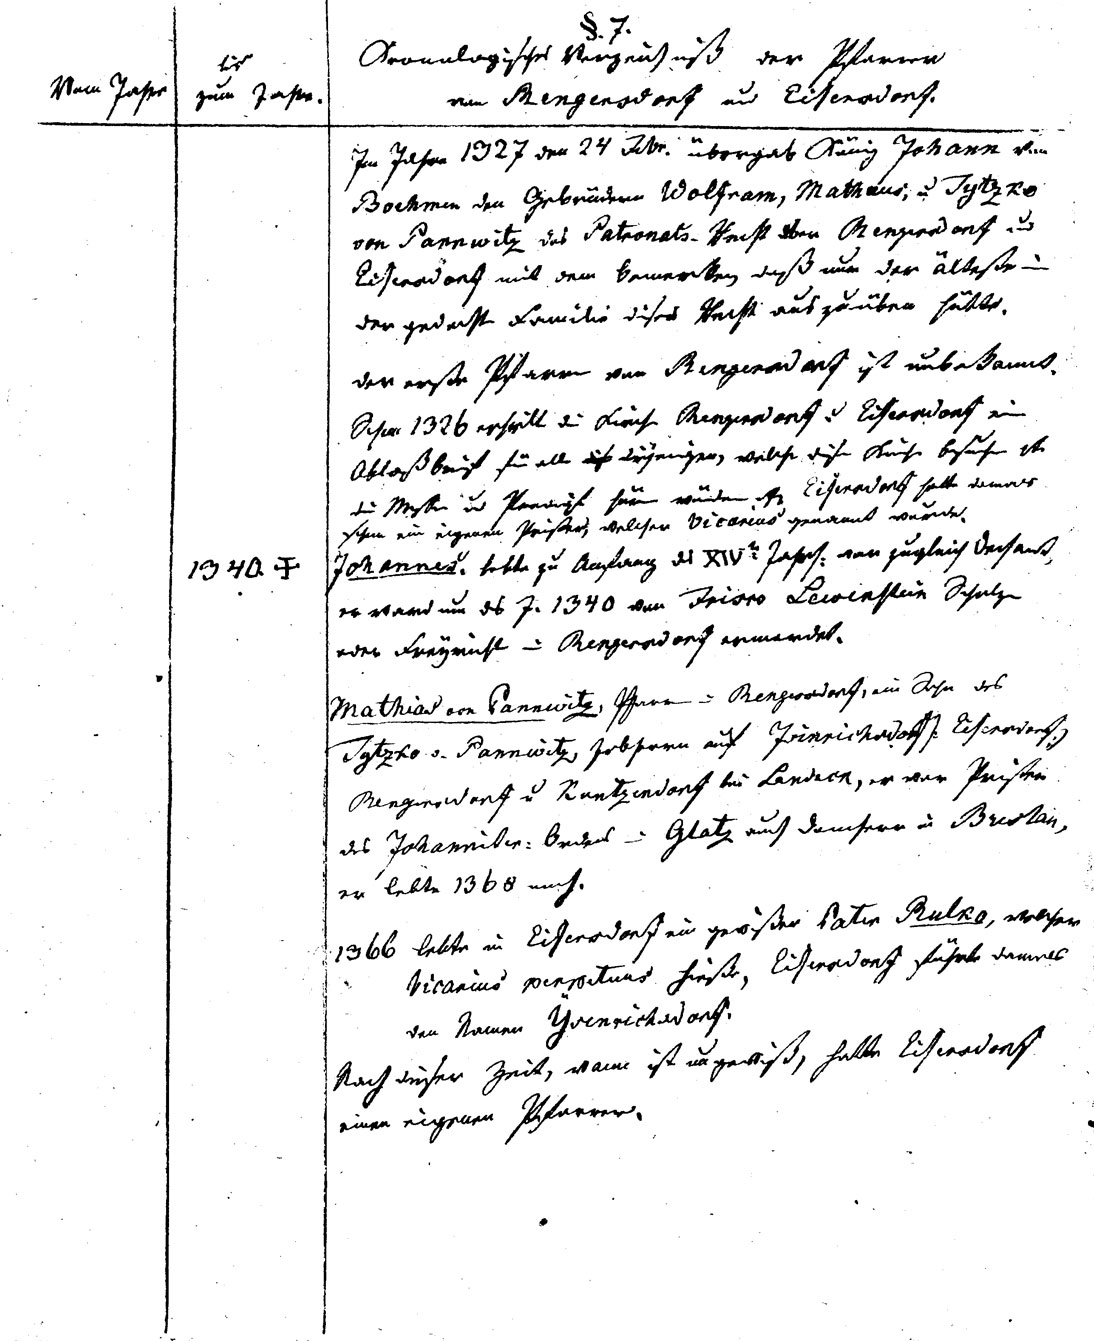 §. 7.
Vom Jahre
bis
zum Jahre.
Kronologisches Verzeichniß der Pfarrer
von Rengersdorf und Eisersdorf.
Im Jahre 1327 den 24 Febr. übergab König Johann von
Boehmen den Gebrüdern Wolfram, Mathaus, u Tytzko
von Pannwitz das Patronats-Recht über Rengersdorf und
Eisersdorf mit dem bemerken, daß nur der älteste in
der gedacht Familie dieses Recht auszuüben hätte.
der erste Pfarrer von Rengersdorf ist unbekannt.
Schon 1326 erhielt die Kirche Rengersdorf u Eisersdorf ein
Ablaßbrief für alle diejenigen, welche diese Kirche besuchen
die Messe und Predigt hören würden Eisersdorf hatte damals
schon ein eigenen Priester, welcher Vicarius genannt wurde.
1340. ✝ Johannes. lebte zu Anfang des XIVt: Jahrh: war zugleich Dechant,
er ward um das J. 1340 von Lewenstein Scholze
oder Freyricht in Rengersdorf ermordet.
Mathias von Pannwitz, Pfarrer in Rengersdorf, ein Sohn des
Tytzko v. Pannwitz, auf Heinrichsdorf /: Eisersdorf :/
Rengersdorf u Kuntzendorf bei Landeck, er war Priester
des Johanniter-Ordens in Glatz auch Domherr in Breslau,
er lebte 1368 noch.
1366 lebte in Eisersdorf ein gewißer Pater Rulko, welcher
Vicarius perpetuus hieße, Eisersdorf führte damals
den Namen Heinrichsdorf.
Nach dieser Zeit, wann ist ungewiß, hatte Eisersdorf
einen eigenen Pfarrer.